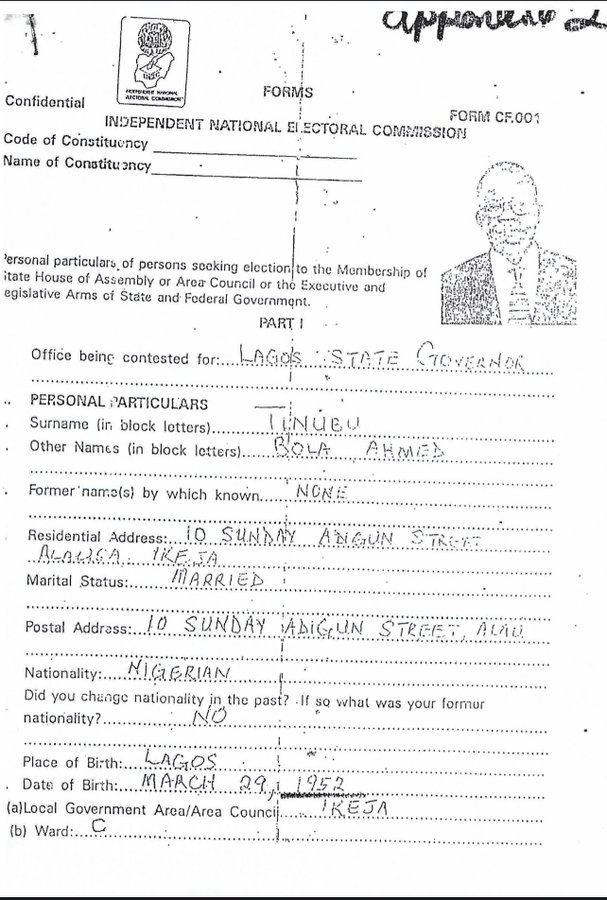 Appendix 2
INEC
INDEPENDENT NATIONAL
ELECTORAL COMMISSION
FORMS
Confidential
FORM CF.001
INDEPENDENT NATIONAL ELECTORAL COMMISSION
Code of Constituency
Name of Constituency
Personal particulars of persons seeking election to the Membership of
State House of Assembly or Area Council or the Executive and
Legislative Arms of State and Federal Government.
PART I
Office being contested for: LAGOS STATE GOVERNOR
PERSONAL PARTICULARS
Surname (in block letters) TINUBU
Other Names (in block letters) BOLA AHMED
Former name(s) by which known NONE
Residential Address: 10 SUNDAY ADIGUN STREET
ALAUSA IKEJA
Marital Status: MARRIED
Postal Address: 10 SUNDAY ADIGUN STREET, ALAU
Nationality: NIGERIAN
Did you change nationality in the past? If so what was your former
nationality? NO
Place of Birth: LAGOS
Date of Birth: MARCH 29, 1952
(a) Local Government Area/Area Council IKEJA
(b) Ward: C